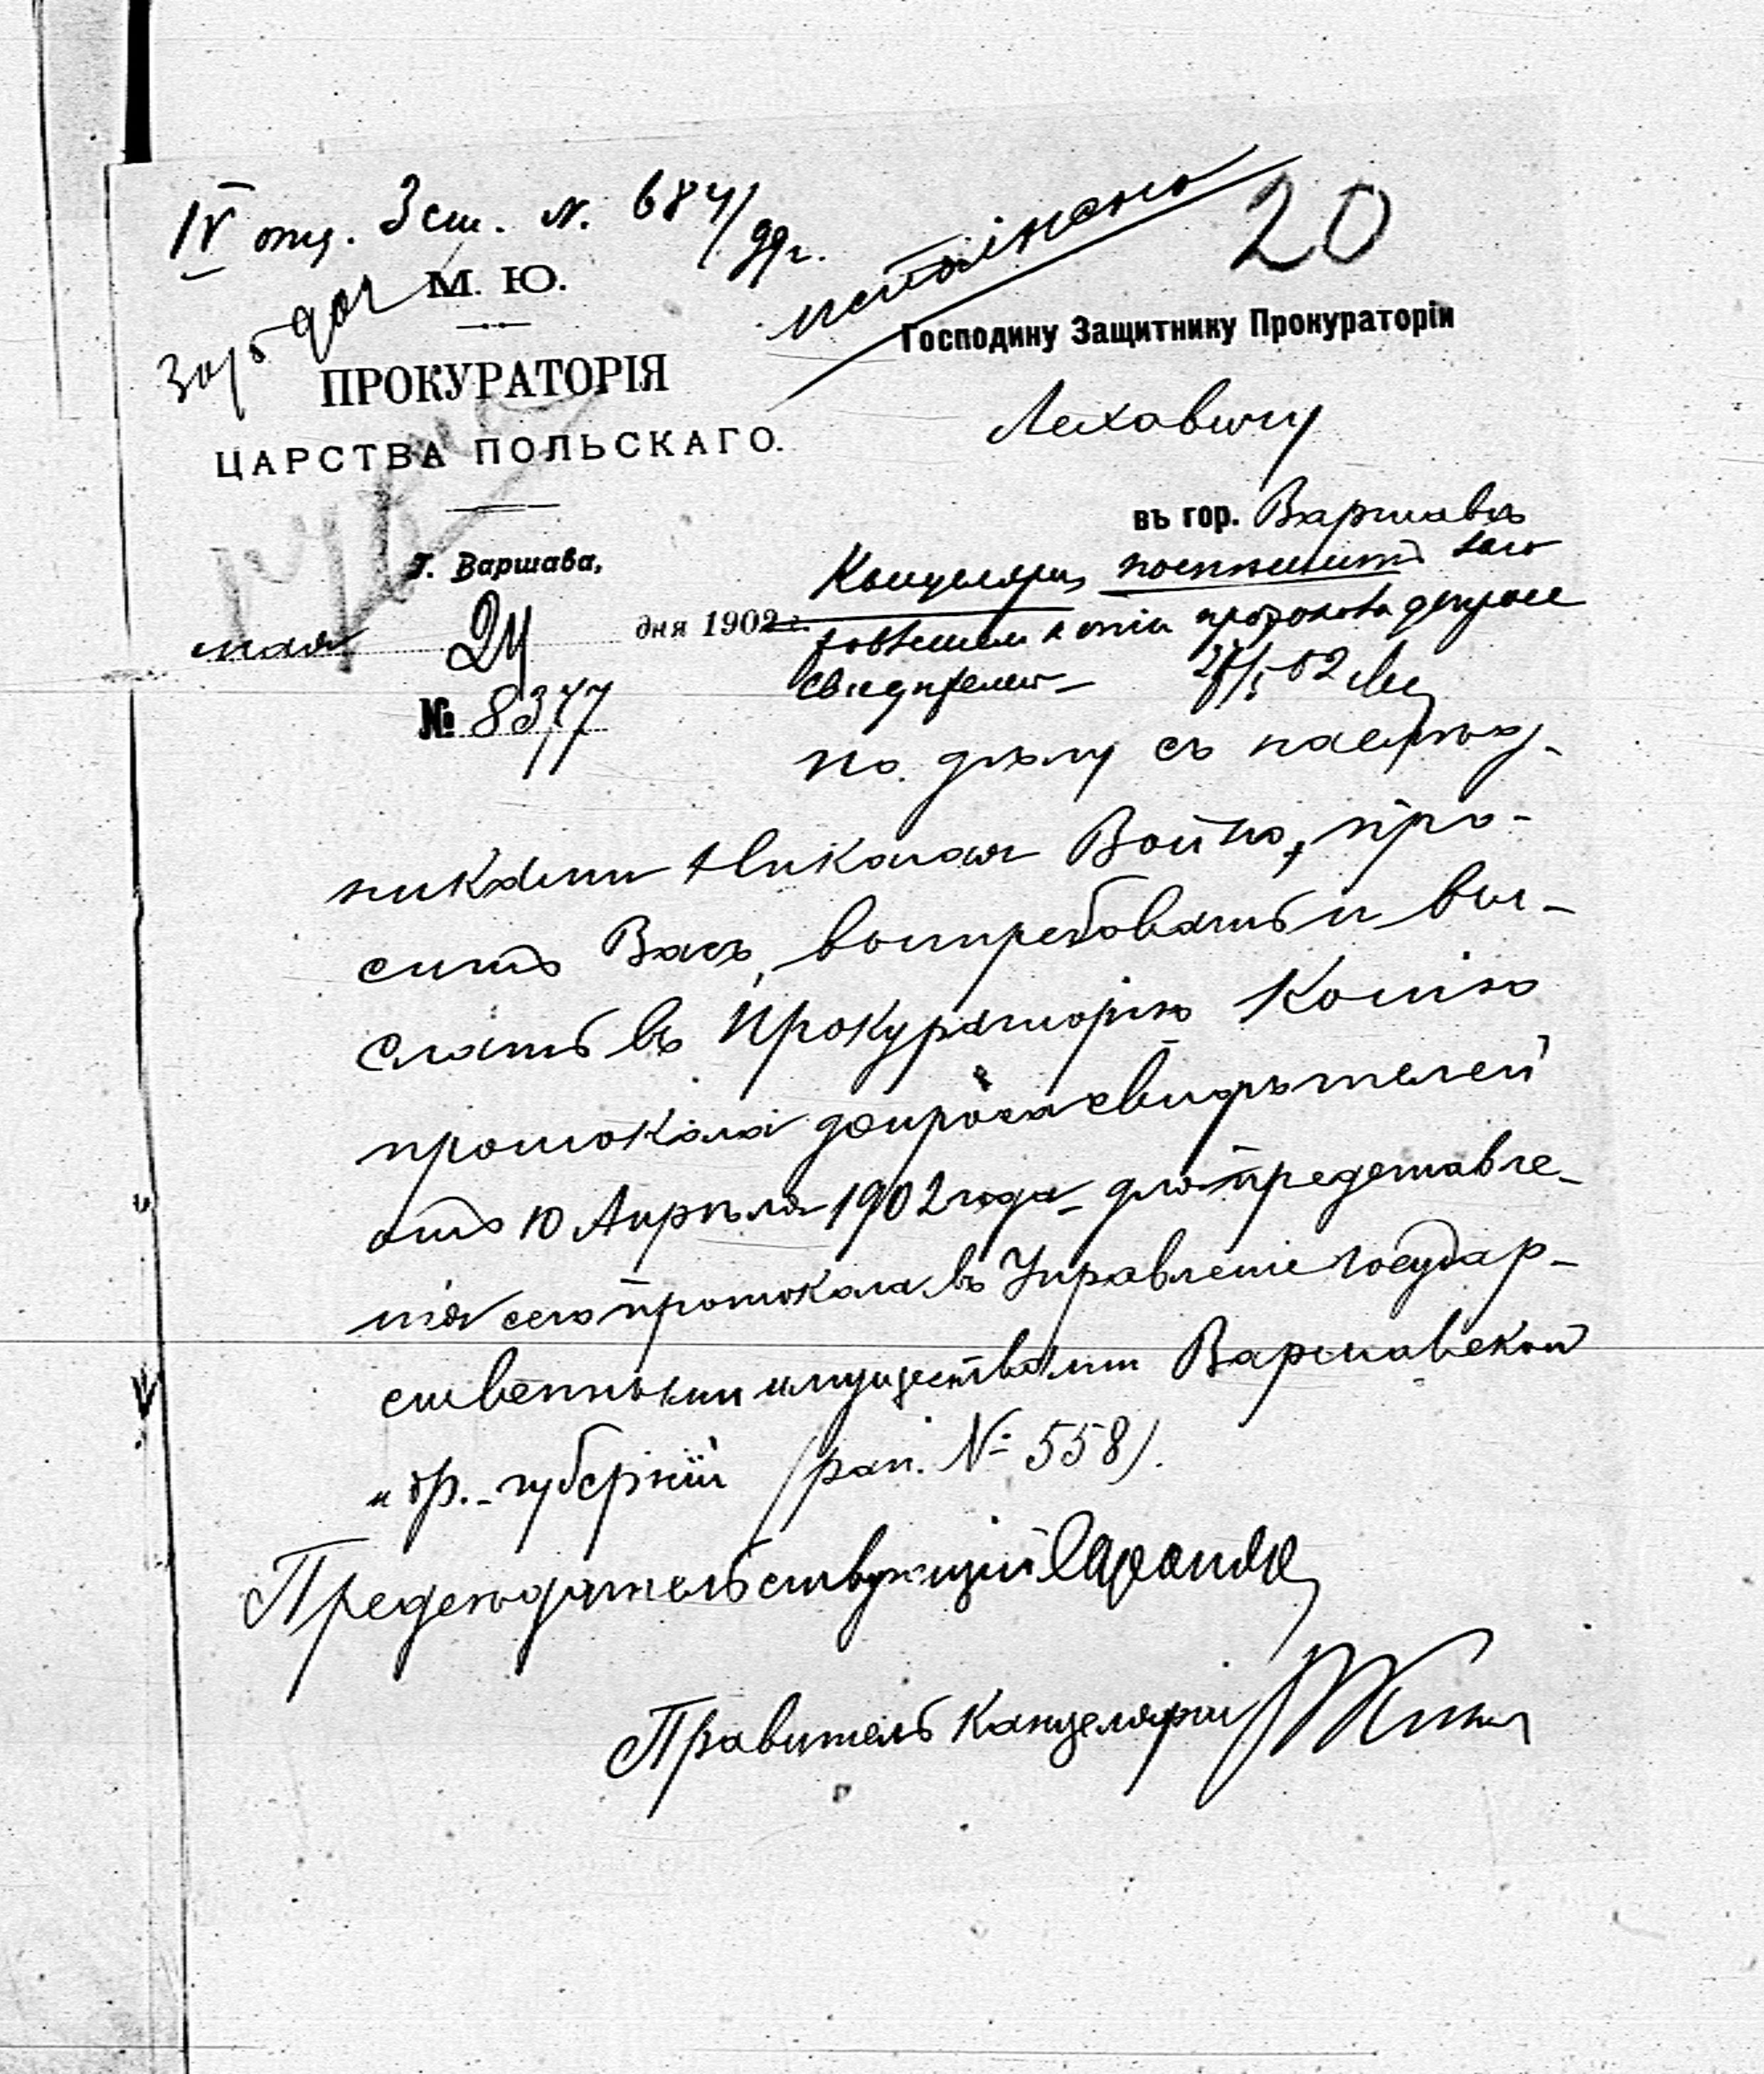 IV отд. 3 ст. N. 684/99 г.
исполнено
20
М. Ю.
ПРОКУРАТОРІЯ
ЦАРСТВА ПОЛЬСКАГО.
Г. Варшава,
мая 24 дня 1902 г.
№ 8377
Господину Защитнику Прокураторіи
Леховичу
въ гор. Варшавѣ
копіи протокола допроса
свидѣтелей
27/5 02
По дѣлу съ наслѣд-
никами Николая Войно, про-
ситъ Васъ, вытребовать и вы-
слать въ Прокураторію копію
протокола допроса свидѣтелей
отъ 10 Апрѣля 1902 года для представле-
нія сего протокола въ Управленіе Государ-
ственными имуществами Варшавской
и др. губерній (рап. № 558).
Предсѣдательствующій
Правитель Канцеляріи